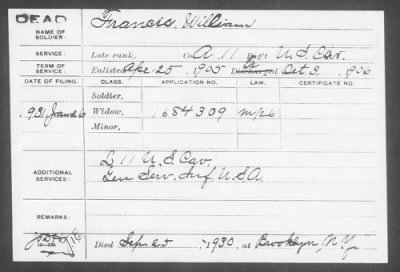 DEAD
NAME OF SOLDIER: Francis, William
SERVICE: Late rank, Co. A 11 Reg't U.S. Cav.
TERM OF SERVICE: Enlisted Apr. 25, 1905 Discharged Oct 3, 1906
DATE OF FILING. CLASS. APPLICATION NO. LAW. CERTIFICATE NO.
Soldier,
1931 Jan 26 Widow, 1684309
Minor,
ADDITIONAL SERVICES: L 11 U.S. Cav.
Gen Serv. Inf, U.S.A.
REMARKS:
Died Sep 25, 1930, at Brooklyn, N.Y.